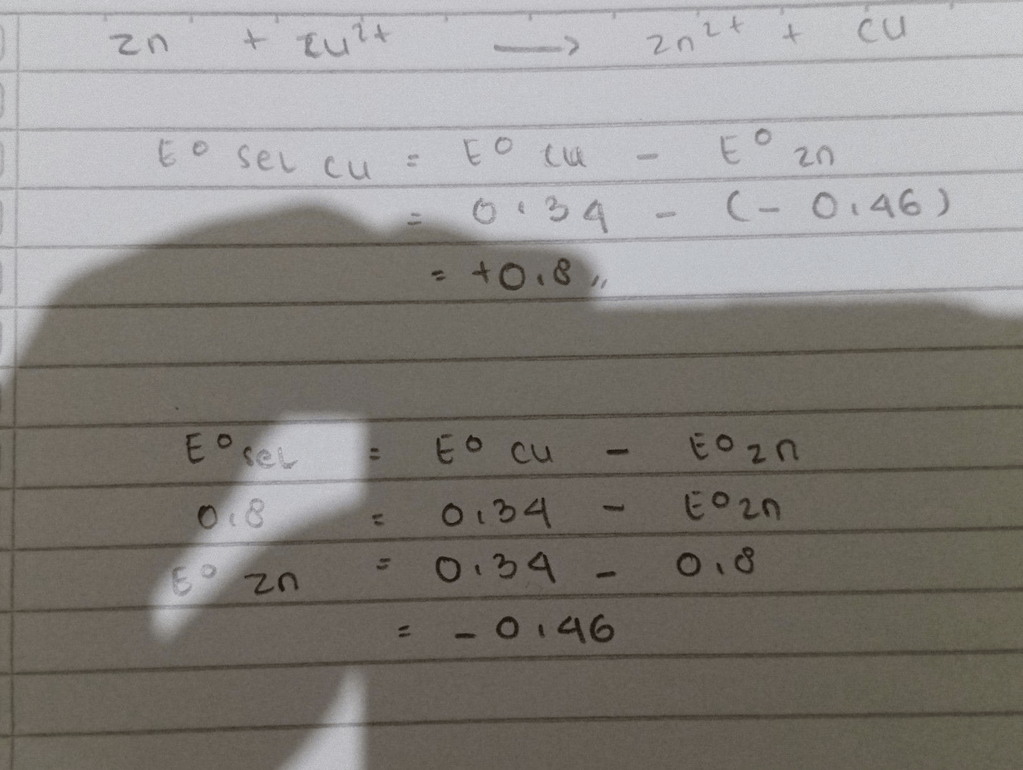 Zn + Cu²⁺ → Zn²⁺ + Cu
E° sel Cu = E° Cu - E° Zn
= 0,34 - (-0,46)
= +0,8 ,,
E° sel = E° Cu - E° Zn
0,8 = 0,34 - E° Zn
E° Zn = 0,34 - 0,8
= -0,46